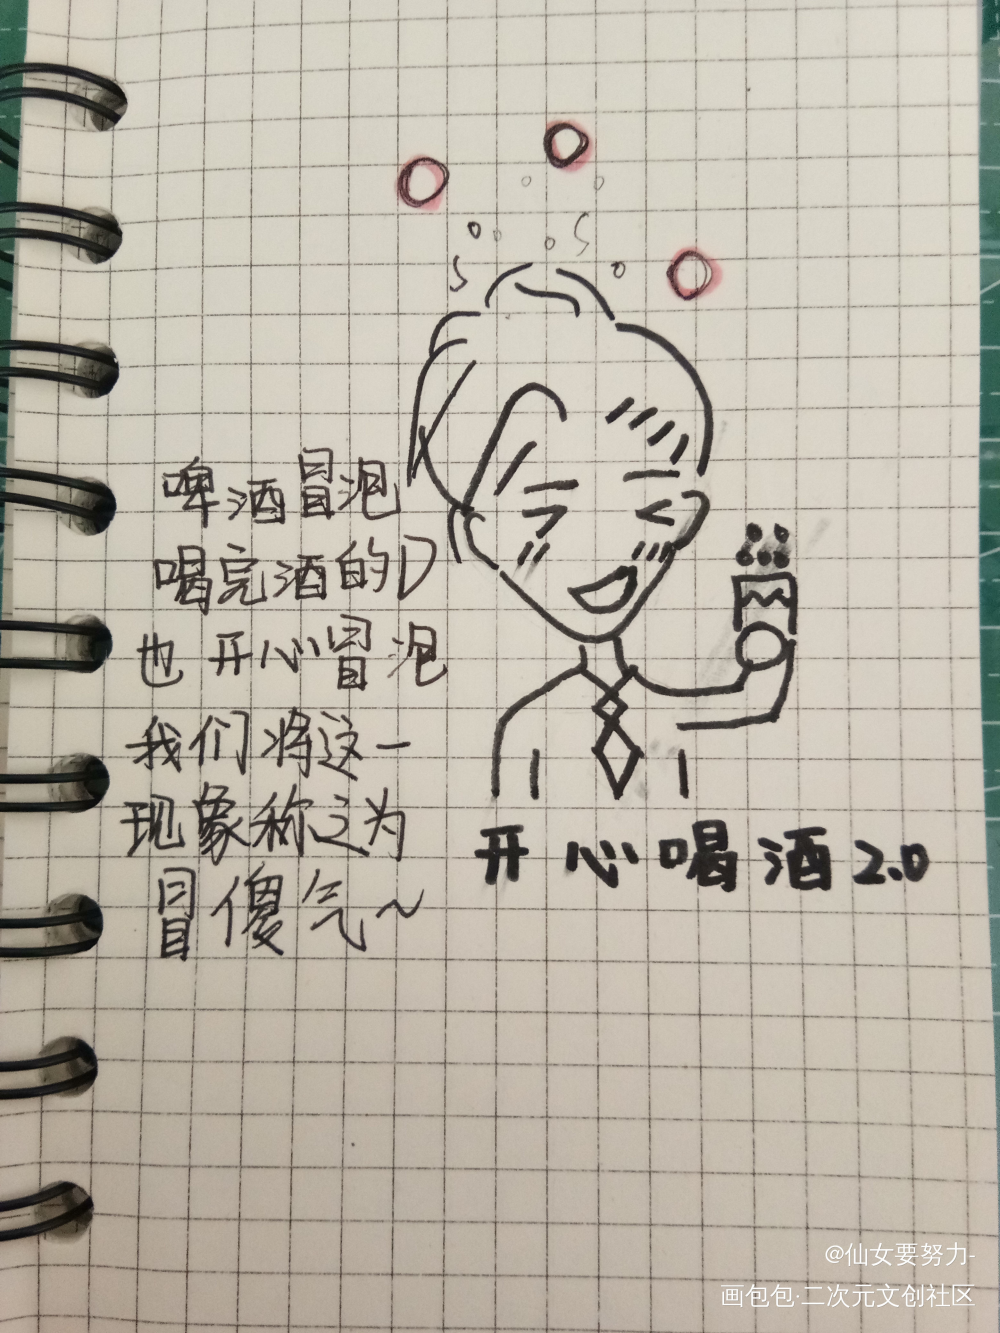 啤酒冒泡
喝完酒的D
也开心冒泡
我们将这一
现象称之为
冒傻气~
开心喝酒2.0
@仙女要努力-
画包包·二次元文创社区